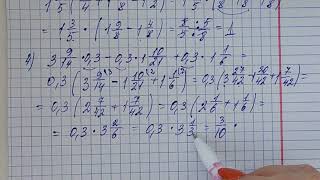 1 3/5 · (1 9/8 - 1 4/8) = 8/5 · 5/8 = 1
3 9/14 · 0,3 - 0,3 · 1 10/21 + 0,3 · 1 1/6 =
= 0,3 (3 9/14 - 1 10/21 + 1 1/6) = 0,3 (3 27/42 - 1 20/42 + 1 7/42) =
= 0,3 (2 7/42 + 1 7/42) = 0,3 (2 1/6 + 1 1/6) =
= 0,3 · 3 2/6 = 0,3 · 3 1/3 = 3/10 ·